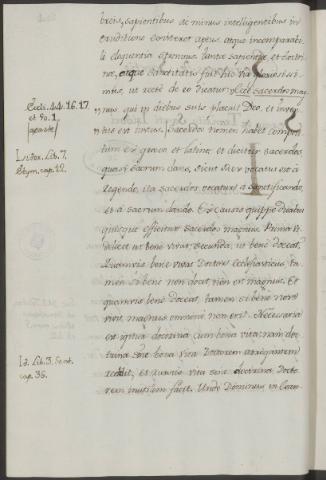 breis, sapientibus ac minus intelligentibus in
eruditione
eloquentia
atque Sanctitatis fuit hic vir
mus, ut recte de eo dicatur: Ecce sacerdos mag
nus, qui in diebus suis placuit Deo, et inven
tus est iustus. Sacerdos nomen habet composi
tum ex graeco et latino, et dicitur sacerdos
quasi sacrum dans, sicut
legendo, ita sacerdos vocatur a sanctificando,
et a sacrum dando. Ex causis quippe duabus
quisque efficitur sacerdos magnus. Prima vi
delicet ut bene vivat, secunda, ut bene doceat.
Quamvis bene vivat Doctor ecclesiasticus, ta
men si bene non docet non est magnus. Et
quamvis bene doceat, tamen si bene non
vivit, magnus omnino non erit. Necessaria
est igitur doctrina cum bona vita: nam doc
trina sine bona vita Doctorem arrogantem
reddit, et vita sine doctrina Docto
rem inutilem facit. Unde Dominus in Evan
Eccli. 44. 16. 17
et 50. 1.
Isidor. Lib. 7.
Etym. cap. 12.
Id. Lib. 3. Sent.
cap. 36.